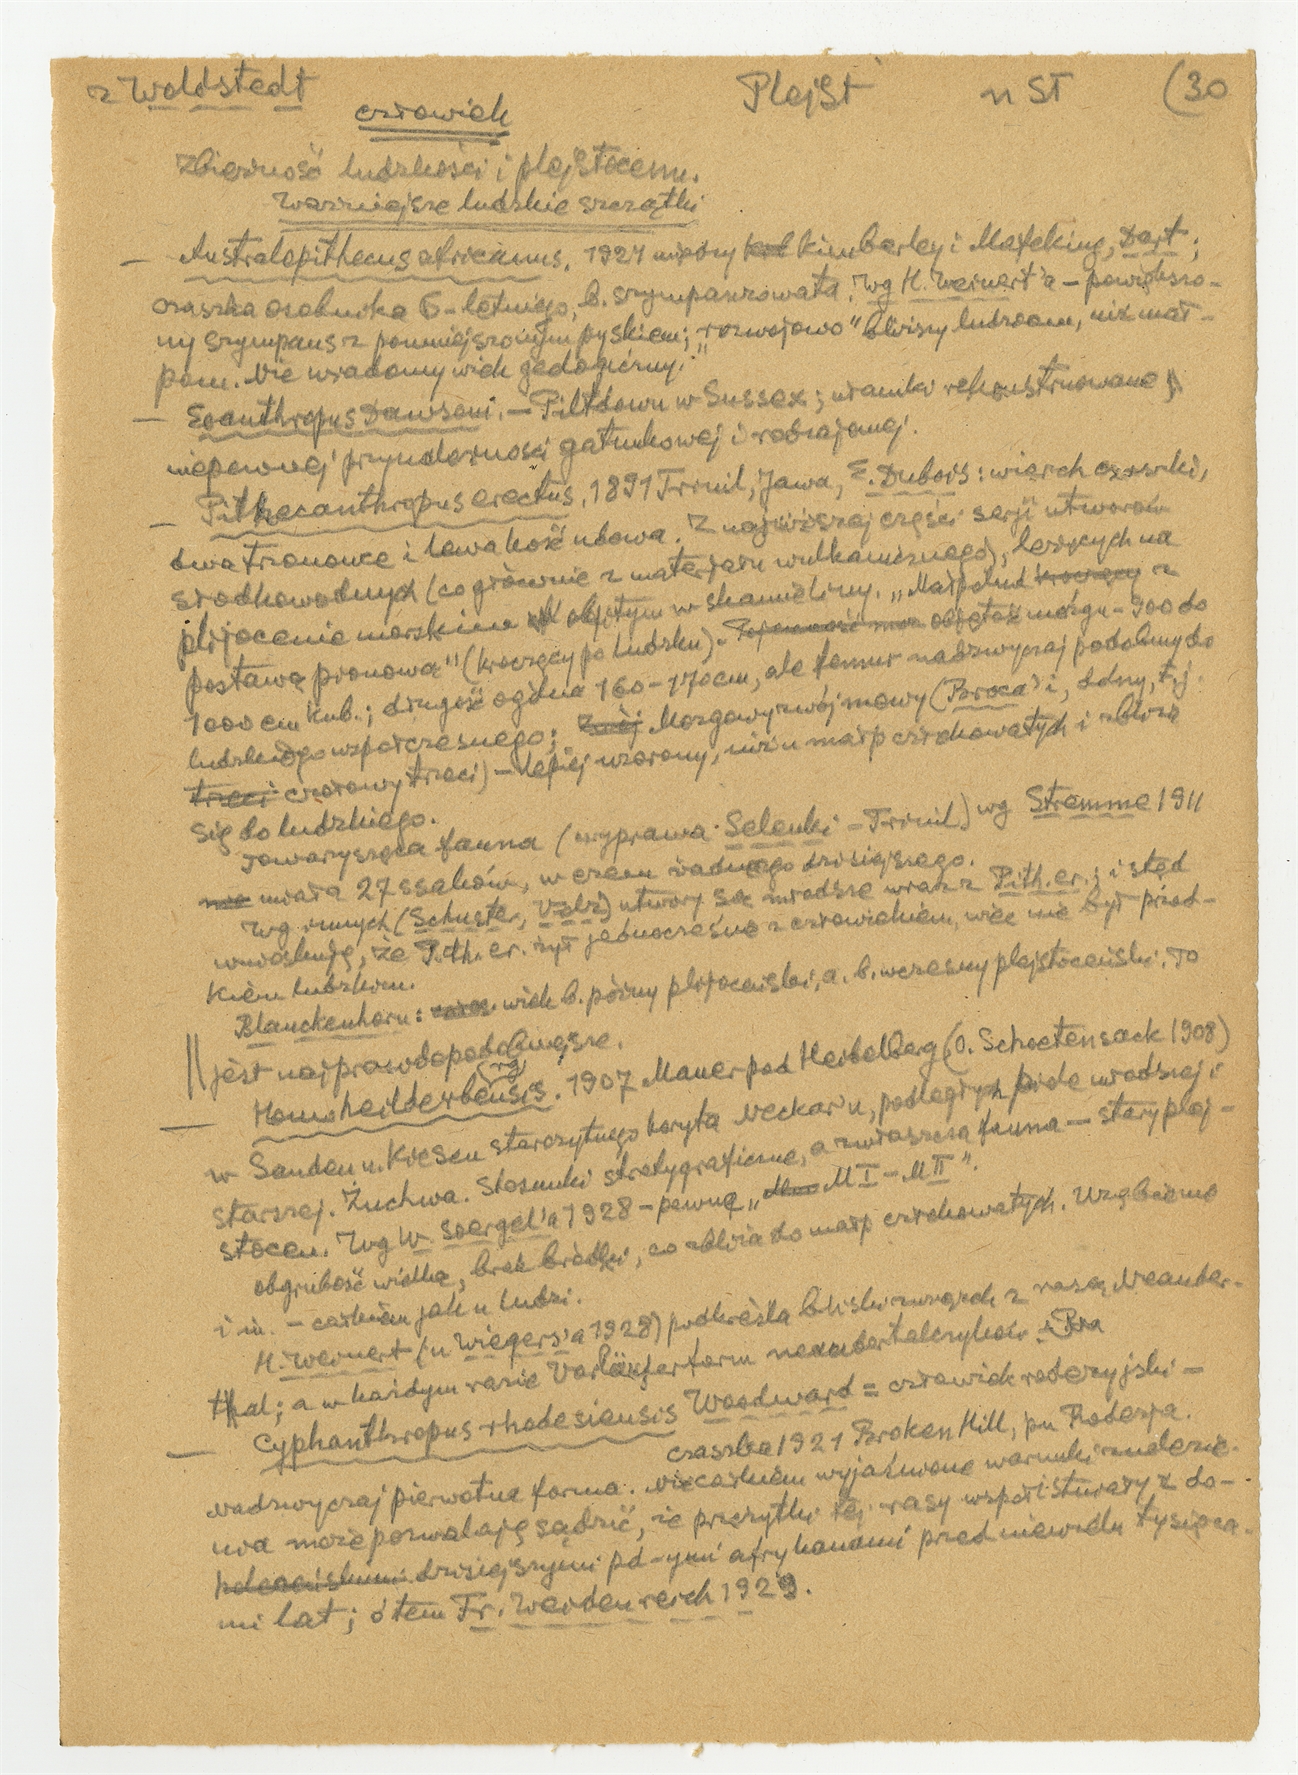 z Woldstedt
Plejst n ST (30
człowiek
Zbieżność ludzkości i plejstocenu.
Ważniejsze ludzkie szczątki
— Australopithecus africanus. 1924 między Kimberley i Mafeking, Dart;
czaszka osobnika 6-letniego, b. szympansowata. Wg H. Weinert'a – powiększo-
ny szympans z pomniejszonym pyskiem; „rozwojowo" bliższy ludziom, niż mał-
pom. Nie wiadomy wiek geologiczny.
— Eoanthropus Dawsoni. – Piltdown w Sussex; ułamki rekonstruowane
niepewnej przynależności gatunkowej i rodzajowej.
— Pithecanthropus erectus, 1891 Trinil, Jawa, E. Dubois: wierch czaszki,
dwa trzonowce i lewa kość udowa. Z najniższej części serji utworów
słodkowodnych (co głównie z materjału wulkanicznego), leżących na
pliocenie morskim obfitym w skamieliny. „Małpolud kroczący z
postawą pionową" (kroczący po ludzku). Pojemność objętość mózgu – 900 do
1000 cm kub.; długość ogólna 160–170 cm, ale femur nadzwyczaj podobny do
ludzkiego współczesnego; Mózgowy zwój mowy (Broca'i, dolny, t.j.
trzeci czołowy trzeci) – lepiej wzorowy, niż u małp człekowatych i zbliża
się do ludzkiego.
Towarzysząca fauna (wyprawa Selenki – Trinil) wg Stremme 1911
miała 27 ssaków, w czem żadnego dzisiejszego.
Wg innych (Schuster, Volz) utwory są młodsze wraz z Pith. er.; i stąd
wnioskują, że Pith. er. żył jednocześnie z człowiekiem, więc nie był przod-
kiem ludzkim.
Blanckenhorn: wiek b. późny pliocenski, a. b. wczesny plejstoceński. To
jest najprawdopodobniejsze.
— Homo heidelbergensis. 1907 Mauer pod Heidelberg (O. Schoetensack 1908)
w Sanden u. Kiesen starożytnego koryta Neckar'u, podległych pod młodszej i
starszej. Żuchwa. Stosunki stratygraficzne, a zwłaszcza fauna – stary plej-
stocen. Wg W. Soergel'a 1928 – pewną „M I – M II".
obgrubość wielka, brak bródki, co zbliża do małp człekowatych. Uzębienie
i in. – całkiem jak u ludzi.
H. Weinert (u Wiegers'a 1928) podkreśla bliski związek z rasą Neander-
thal; a w każdym razie Vorläuferform neandertalczyków.
— Cyphanthropus rhodesiensis Woodward = człowiek rodezyjski –
czaszka 1921 Broken Hill, pn Rodezja.
Nadzwyczaj pierwotna forma. Niecałkiem wyjaśnione warunki znalezie-
nia może pozwalają sądzić, że przeżytki tej rasy współistniały z do-
dzisiejszymi pd-ymi afrykanami przed niewielu tysiąca-
mi lat; o tem Fr. Weidenreich 1929.